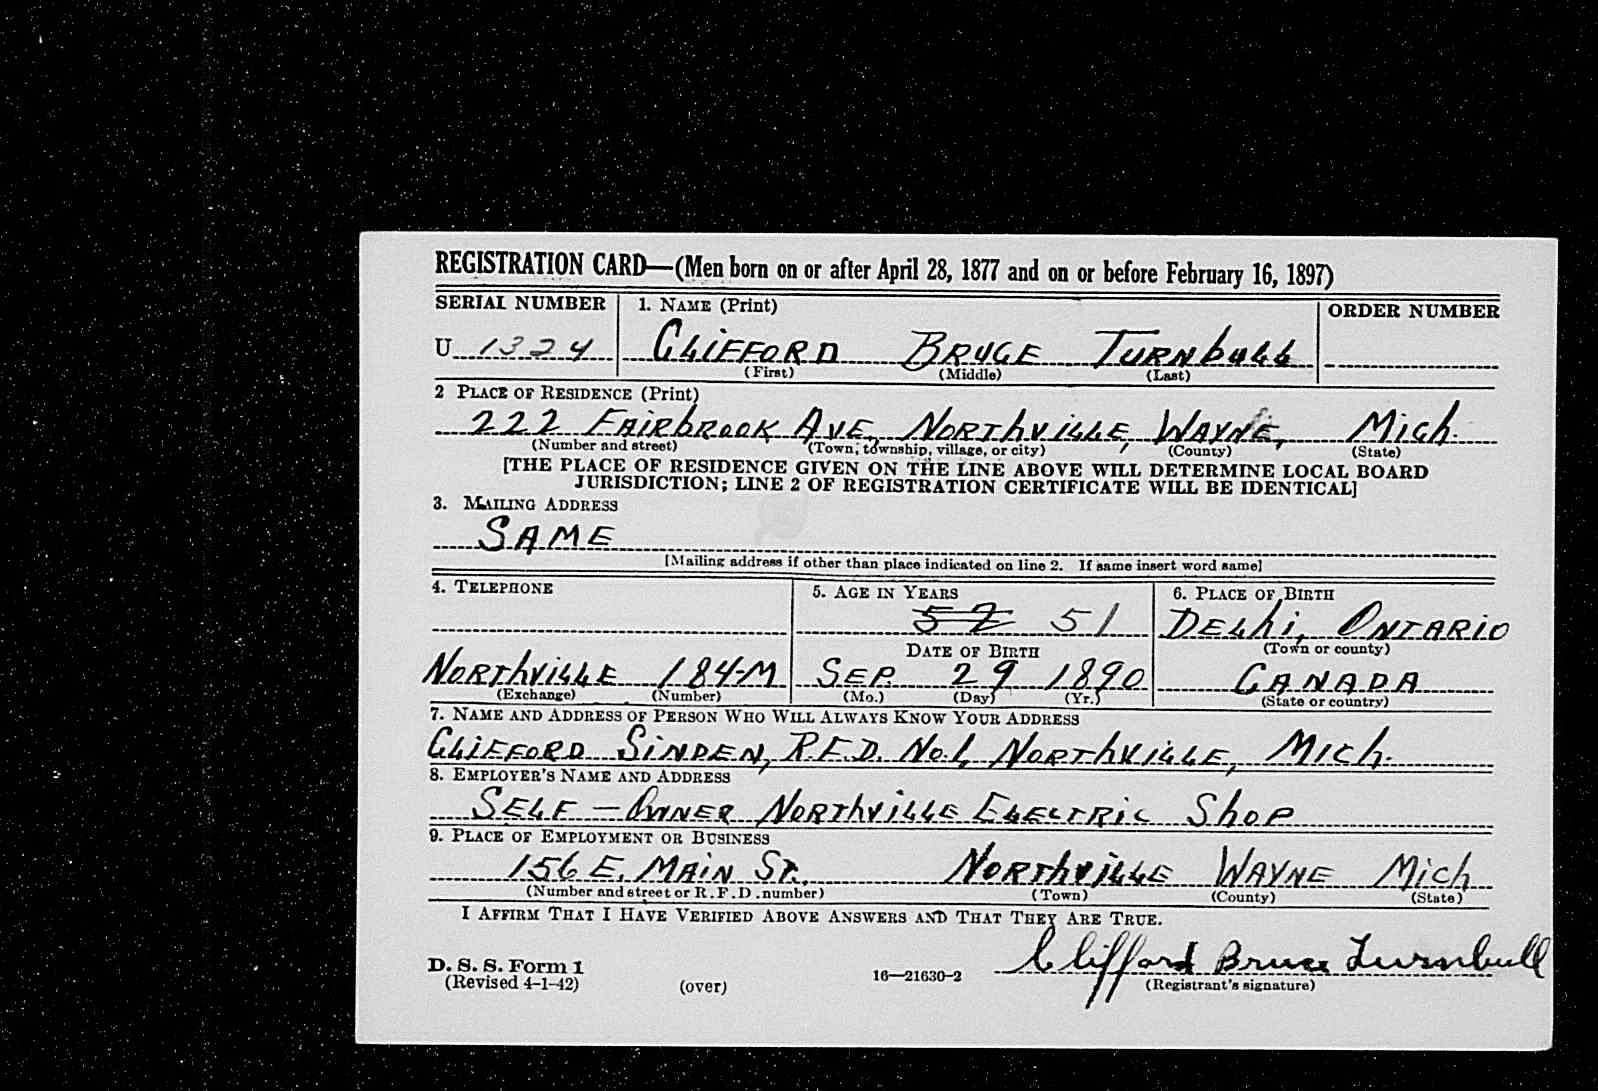 REGISTRATION CARD—(Men born on or after April 28, 1877 and on or before February 16, 1897)
SERIAL NUMBER 1. NAME (Print) ORDER NUMBER
U 1324 CLIFFORD BRUCE TURNBULL
(First) (Middle) (Last)
2 PLACE OF RESIDENCE (Print)
222 FAIRBROOK AVE, NORTHVILLE, WAYNE, MICH.
(Number and street) (Town, township, village, or city) (County) (State)
[THE PLACE OF RESIDENCE GIVEN ON THE LINE ABOVE WILL DETERMINE LOCAL BOARD
JURISDICTION; LINE 2 OF REGISTRATION CERTIFICATE WILL BE IDENTICAL]
3. MAILING ADDRESS
SAME
[Mailing address if other than place indicated on line 2. If same insert word same]
4. TELEPHONE 5. AGE IN YEARS 6. PLACE OF BIRTH
52 51 DELHI, ONTARIO
DATE OF BIRTH (Town or county)
NORTHVILLE 184-M SEP. 29 1890 CANADA
(Exchange) (Number) (Mo.) (Day) (Yr.) (State or country)
7. NAME AND ADDRESS OF PERSON WHO WILL ALWAYS KNOW YOUR ADDRESS
CLIFFORD SINDEN, R.F.D. No.1, NORTHVILLE, MICH.
8. EMPLOYER'S NAME AND ADDRESS
SELF — OWNER NORTHVILLE ELECTRIC SHOP
9. PLACE OF EMPLOYMENT OR BUSINESS
156 E. MAIN ST., NORTHVILLE WAYNE MICH
(Number and street or R. F. D. number) (Town) (County) (State)
I AFFIRM THAT I HAVE VERIFIED ABOVE ANSWERS AND THAT THEY ARE TRUE.
Clifford Bruce Turnbull
D. S. S. Form 1
(Revised 4-1-42) (over) 16—21630-2 (Registrant's signature)